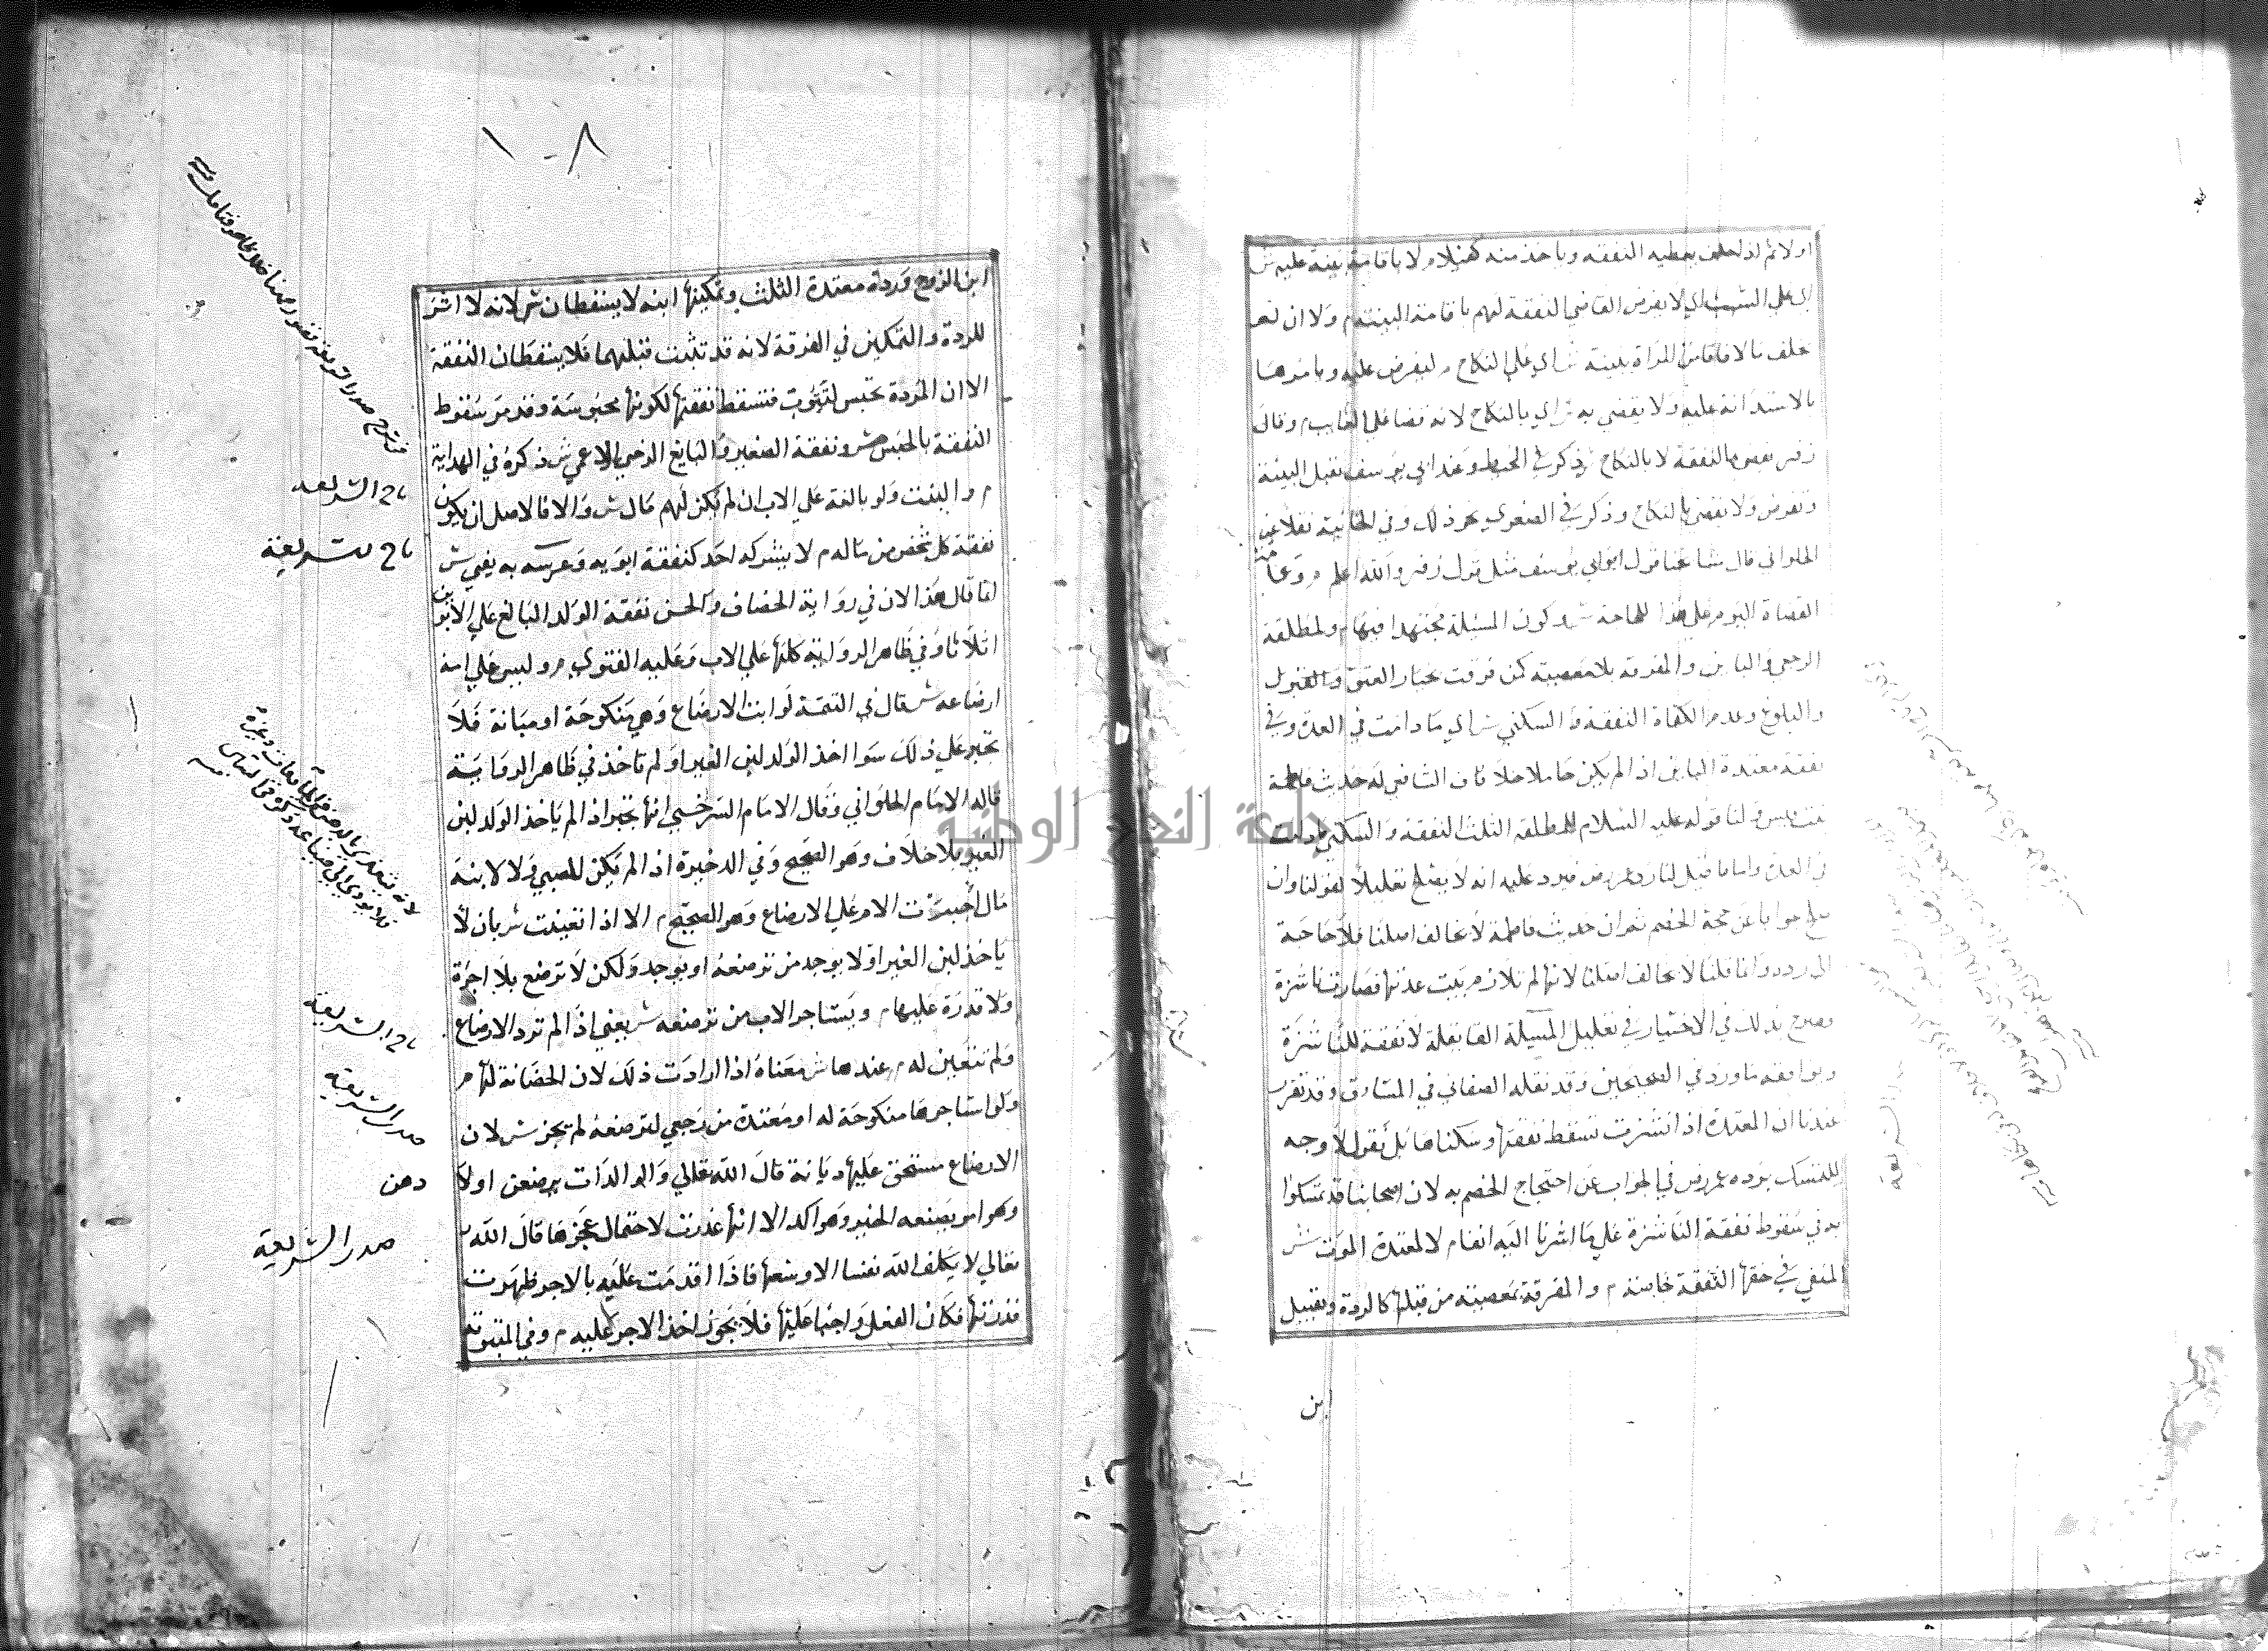 اولا ثم اذا حلف يعطيه النفقة وياخذ منه كفيلا م لا باقامة بينة عليه ش
اي علي النسب اي لا يفرض القاضي النفقة لهم باقامة البينة م ولا ان لم
يخلف مالا فاقامت المراة بينة ش اي علي النكاح م ليفرض عليه ويامرها
بالاستدانة عليه ولا يقضي به ش اي بالنكاح لانه قضا علي الغايب م وقال
زفر يقضي بالنفقة لا بالنكاح ش ذكر في المحيط وعند ابي يوسف تقبل البينة
وتفرض ولا يقضي بالنكاح وذكر في الصغري نحو ذلك وفي الخانية نقلا عن
الحلواني قال مشايخنا قول ابي يوسف مثل قول زفر والله اعلم م وعمل
القضاة اليوم علي هذا للحاجة ش لكون المسئلة مجتهدا فيها م ولمطلقة
الرجعي والباين والمفرقة بلا معصية كمن فرقت بخيار العتق
والبلوغ وعدم الكفاة النفقة والسكني ش اي ما دامت في العدة وفي
نفقة معتدة الباين اذا لم يكن حاملا خلاف الشافعي له حديث فاطمة
بنت قيس ولنا قوله عليه السلام للمطلقة الثلث النفقة والسكني ما دامت
في العدة واما ما قيل لنا رد عمر رض فيرد عليه انه لا يصلح تعليلا لقولنا وان
صلح جوابا عن حجة الخصم ثم ان حديث فاطمة لا يخالف اصلنا فلا حاجة
الي رده وانما قلنا لا يخالف اصلنا لانها لم تلازم بيت عدتها فصارت ناشزة
وصرح بذلك في الاختيار في تعليل المسئلة القايلة لا نفقة للناشزة
ويوافقه ما ورد في الصحيحين وقد نقله الصغاني في المشارق وقد تقرر
عندنا ان المعتدة اذا نشزت تسقط نفقتها وسكناها بل نقول لا وجه
للتمسك برده عمر رض في الجواب عن احتجاج الخصم به لان اصحابنا قد تمسكوا
به في سقوط نفقة الناشزة علي ما اشرنا اليه انفا م لا لمعتدة الموت ش
المنفي في حقها النفقة خاصة م والمفرقة بمعصية من قبلها كالردة وتقبيل
ابن
١٠٨
ابن الزوج وردة معتدة الثلث وتمكينها ابنه لا يسقطان ش لانه لا اثر
للردة والتمكين في الفرقة لانه قد تثبت قبلهما فلا يسقطان النفقة
الا ان المردة تحبس لتتوب فتسقط نفقتها لكونها محبوسة وقد مر سقوط
النفقة بالحبس م ونفقة الصغير والبايغ الزمن الاعمي ش ذكره في الهداية
م والبنت ولو بالغة علي الاب ان لم يكن لهم مال ش والا فالاصل ان يكون
نفقة كل شخص من ماله م لا يشركه احد كنفقة ابويه وعرسه به يفتي ش
انما قال هذا لان في رواية الخصاف والحسن نفقة الولد البالغ علي الابوين
اثلاثا وفي ظاهر الرواية كلها علي الاب وعليه الفتوي م وليس علي امه
ارضاعه ش قال في التتمة لو ابت الارضاع وهي منكوحة او مبانة فلا
تجبر علي ذلك سوا اخذ الولد لبن الغير او لم ياخذ في ظاهر الرواية
قاله الامام الحلواني وقال الامام السرخسي انها تجبر اذا لم ياخذ الولد لبن
الغير بلا خلاف وهو الصحيح وفي الدخيرة اذا لم يكن للصبي ولا لابنه
مال اجبرت الام علي الارضاع وهو الصحيح م الا اذا تعينت ش بان لا
ياخذ لبن الغير او لا يوجد من ترضعه او يوجد ولكن لا ترضع بلا اجرة
ولا قدرة عليها م ويستاجر الاب من ترضعه ش يعني اذا لم ترد الارضاع
ولم تتعين له م عندها ش معناه اذا ارادت ذلك لان الحضانة لها م
ولو استاجرها منكوحة له او معتدة من رجعي لترضعه لم يجز ش لان
الارضاع مستحق عليها ديانة قال الله تعالي والوالدات يرضعن اولا
دهن
وهو امر بصيغة الخبر وهو اكد الا انها عذرت لاحتمال عجزها قال الله
تعالي لا يكلف الله نفسا الا وسعها فاذا اقدمت عليه بالاجر ظهرت
قدرتها فكان الفعل واجبا عليها فلا يجوز اخذ الاجر عليه م وفي المبتوتة
تاج الشريعة
تاج الشريعة
تاج الشريعة
صدر الشريعة
صدر الشريعة